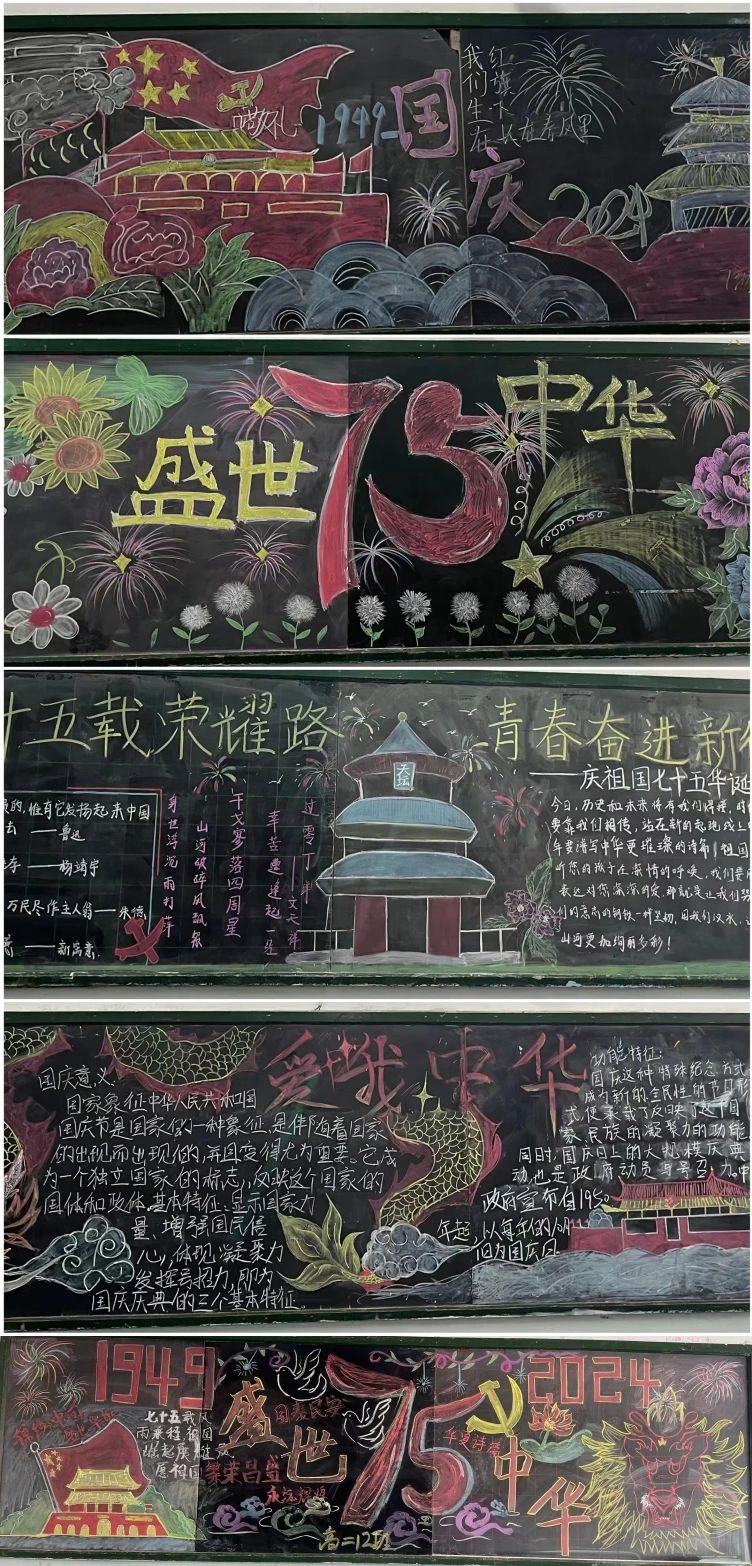 我们生在
红旗下
长在春风里
1949
国
庆
2024
盛世
75
中华
十五载荣耀路
惟有它发扬起来中国
——鲁迅
——杨靖宇
万民尽作主人翁——朱德
过零丁洋
——文天祥
辛苦遭逢起一经
干戈寥落四周星
山河破碎风飘絮
身世浮沉雨打萍
天坛
青春奋进新
——庆祖国七十五华诞
今日,历史和未来将有我们
要靠我们相传,站在新的起跑线上
年要谱写中华更璀璨的诗篇!祖国
听您的孩子在深情的呼唤,我们要
表达对您深深的爱,那就是让我们
们的意志的钢铁一样坚韧,用我们
山河更加绚丽多彩!
爱我中华
国庆意义:
国家象征中华人民共和国
国庆节是国家的一种象征,是伴随着国家
的出现而出现的,并且变得尤为重要。它成
为一个独立国家的标志,反映这个国家的
国体和政体,基本特征:显示国家力
量、增强国民信
心,体现凝聚力
发挥号召力,即为
国庆庆典的三个基本特征。
功能特征:
国庆这种特殊纪念方式
成为新的、全民性的节日形
式便承载了反映了这个国
家、民族的凝聚力的功能
同时国庆日上的大规模庆典
动,也是政府动员与号召力
政府宣布自1950
年起,以每年的10月1日
1949
七十五载风
雨兼程,祖国
崛起
愿祖国
盛世
国泰民安
繁荣昌盛
永远辉煌
75
华夏
2024
中华
高二12班